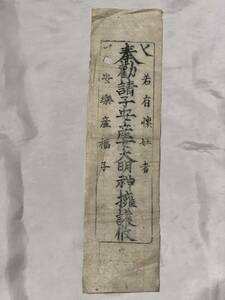 若有懐妊者
奉勧請子安大明神擁護攸
安樂産福子